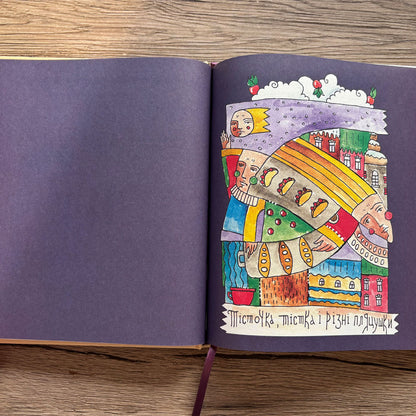 Тісточка, тістка і різні пляцушки